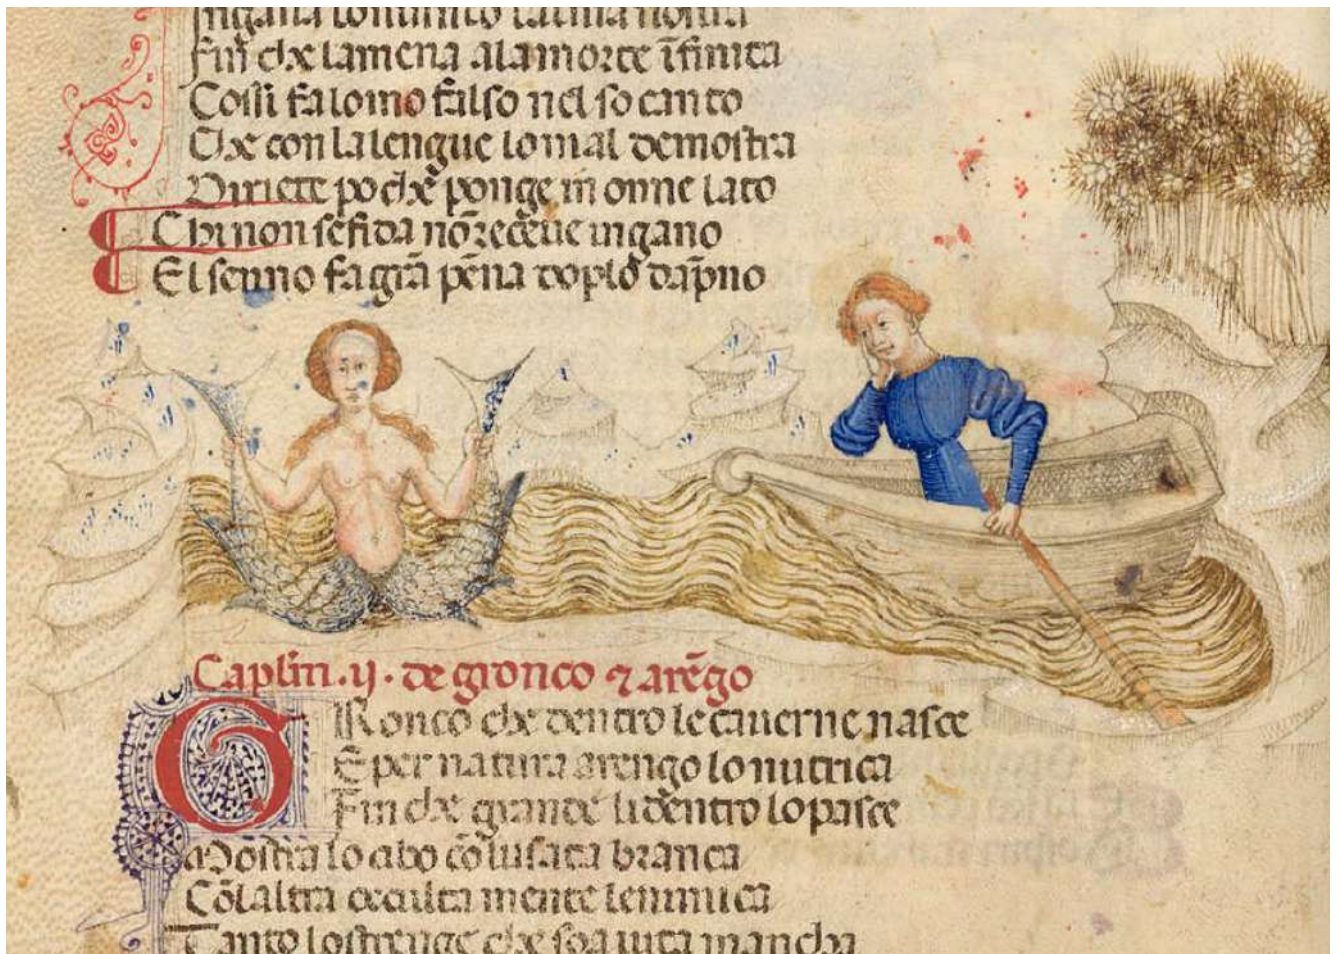 Fin che lamena ala morte īfinita
Cossi fa lomo falso nel so canto
Che con la lengue lo mal demostra
Diriete po che ponge in onne lato
Chi non se fida nō receue ingano
El senno fa grā pēna doplo dāpno
Caplm .ij. de gronco ⁊ arēgo
GRonco che dentro le cauerne nasce
E per natura arengo lo nutrica
Fin che grande li dentro lo pasce
Mōstra lo cibo cō lusata branca
Cō laltra occulta mente lenimica
Tanto lo strenge che soa uita mancha